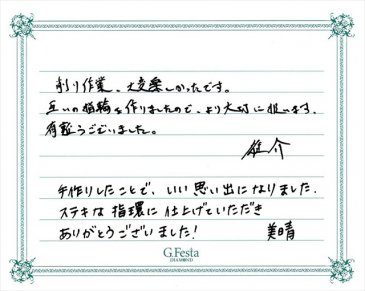 削り作業、大変楽しかったです。
互いの指輪を作りましたので、より大切に想います。
有難うございました。
雄介
手作りしたことで、いい思い出になりました.
ステキな指環に仕上げていただき
ありがとうございました!
美晴
G.Festa
DIAMOND